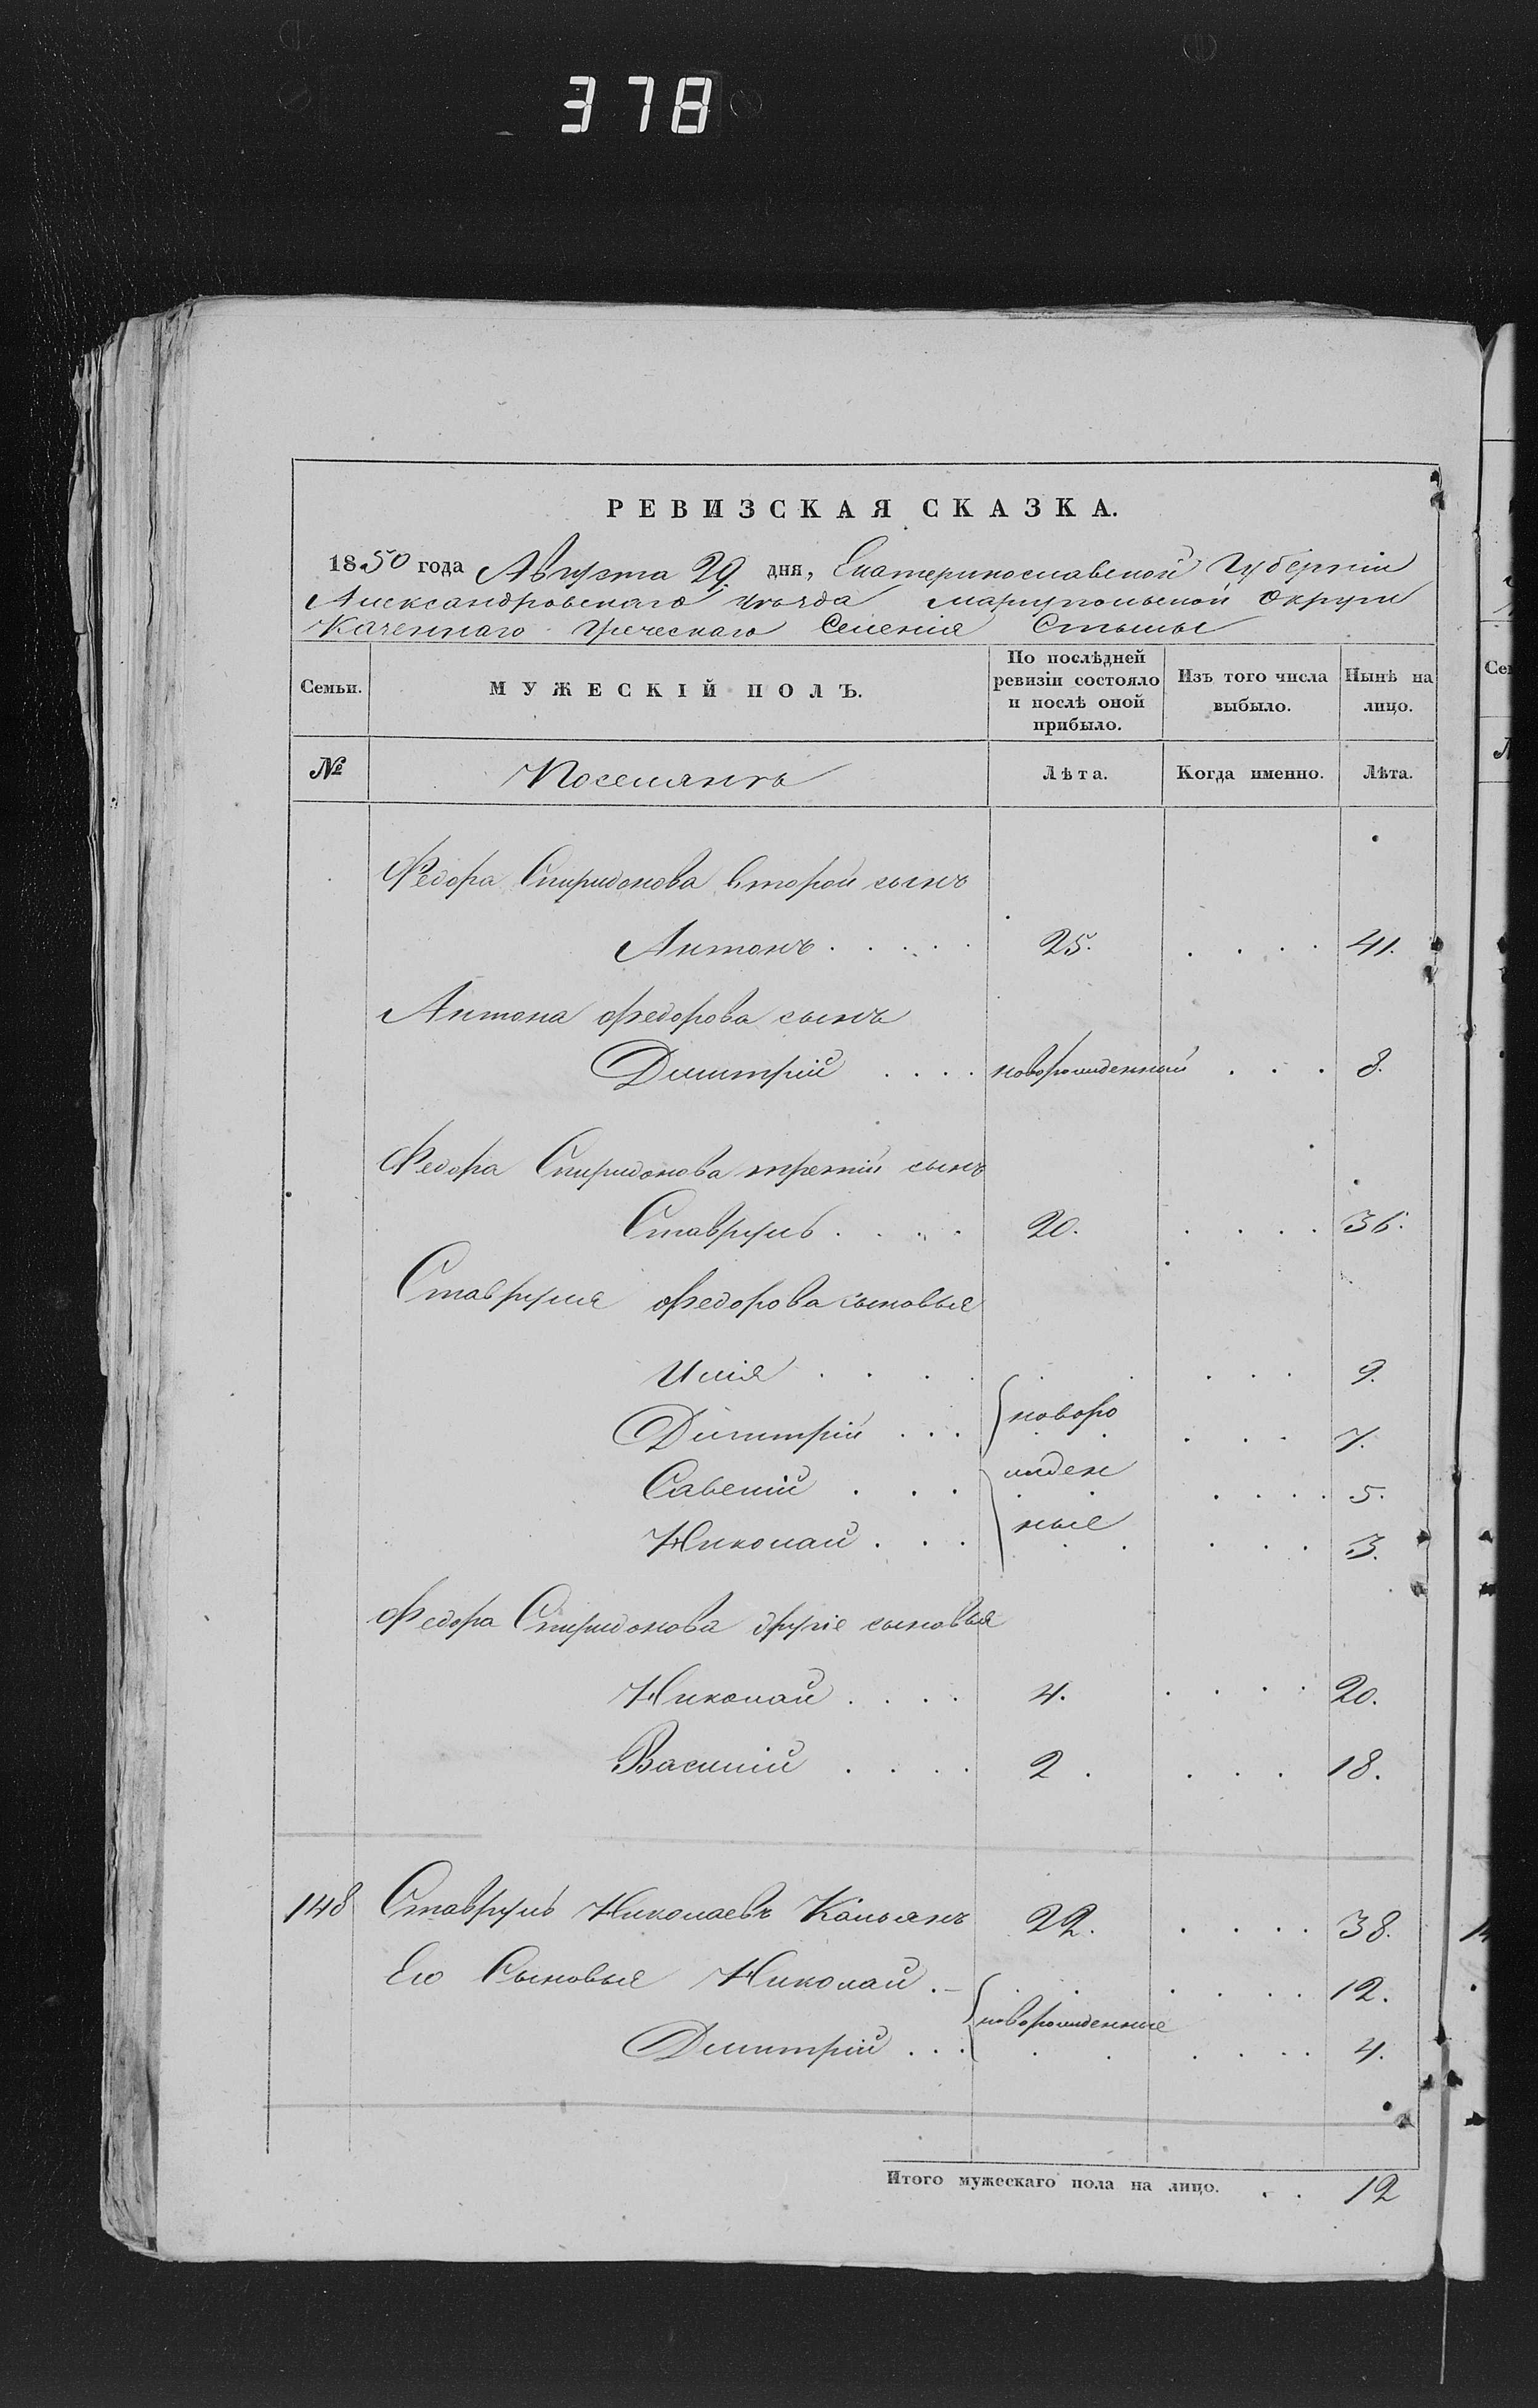 378
РЕВИЗСКАЯ СКАЗКА.
1850 года Августа 29 дня, Екатеринославской Губерніи
Александровскаго уѣзда Мариупольской Округи
Казеннаго Греческаго Селенія Стылы
Семьи. МУЖЕСКІЙ ПОЛЪ. По послѣдней ревизіи состояло и послѣ оной прибыло. Изъ того числа выбыло. Нынѣ на лицо.
№ Поселянъ Лѣта. Когда именно. Лѣта.
Федора Спиридонова второй сынъ
Антонъ . . . . . 25. . . . . 41.
Антона Федорова сынъ
Дмитрій . . . . новорожденный . . . 8.
Федора Спиридонова третій сынъ
Ставрулъ . . . . 20. . . . . 36.
Ставруля Федорова сыновья
Илія . . . . . . . . . 9.
Димитрій . . . новоро . . . 7.
Савелій . . . жден . . . . 5.
Николай . . . ные . . . 3.
Федора Спиридонова другіе сыновья
Николай . . . . 4. . . . . 20.
Василій . . . . 2. . . . 18.
148 Ставрулъ Николаевъ Кальянъ 22. . . . . 38.
Его Сыновья Николай . . . . . . 12.
новорожденные
Дмитрій . . . . . . . . . 4.
Итого мужескаго пола на лицо. . . 12